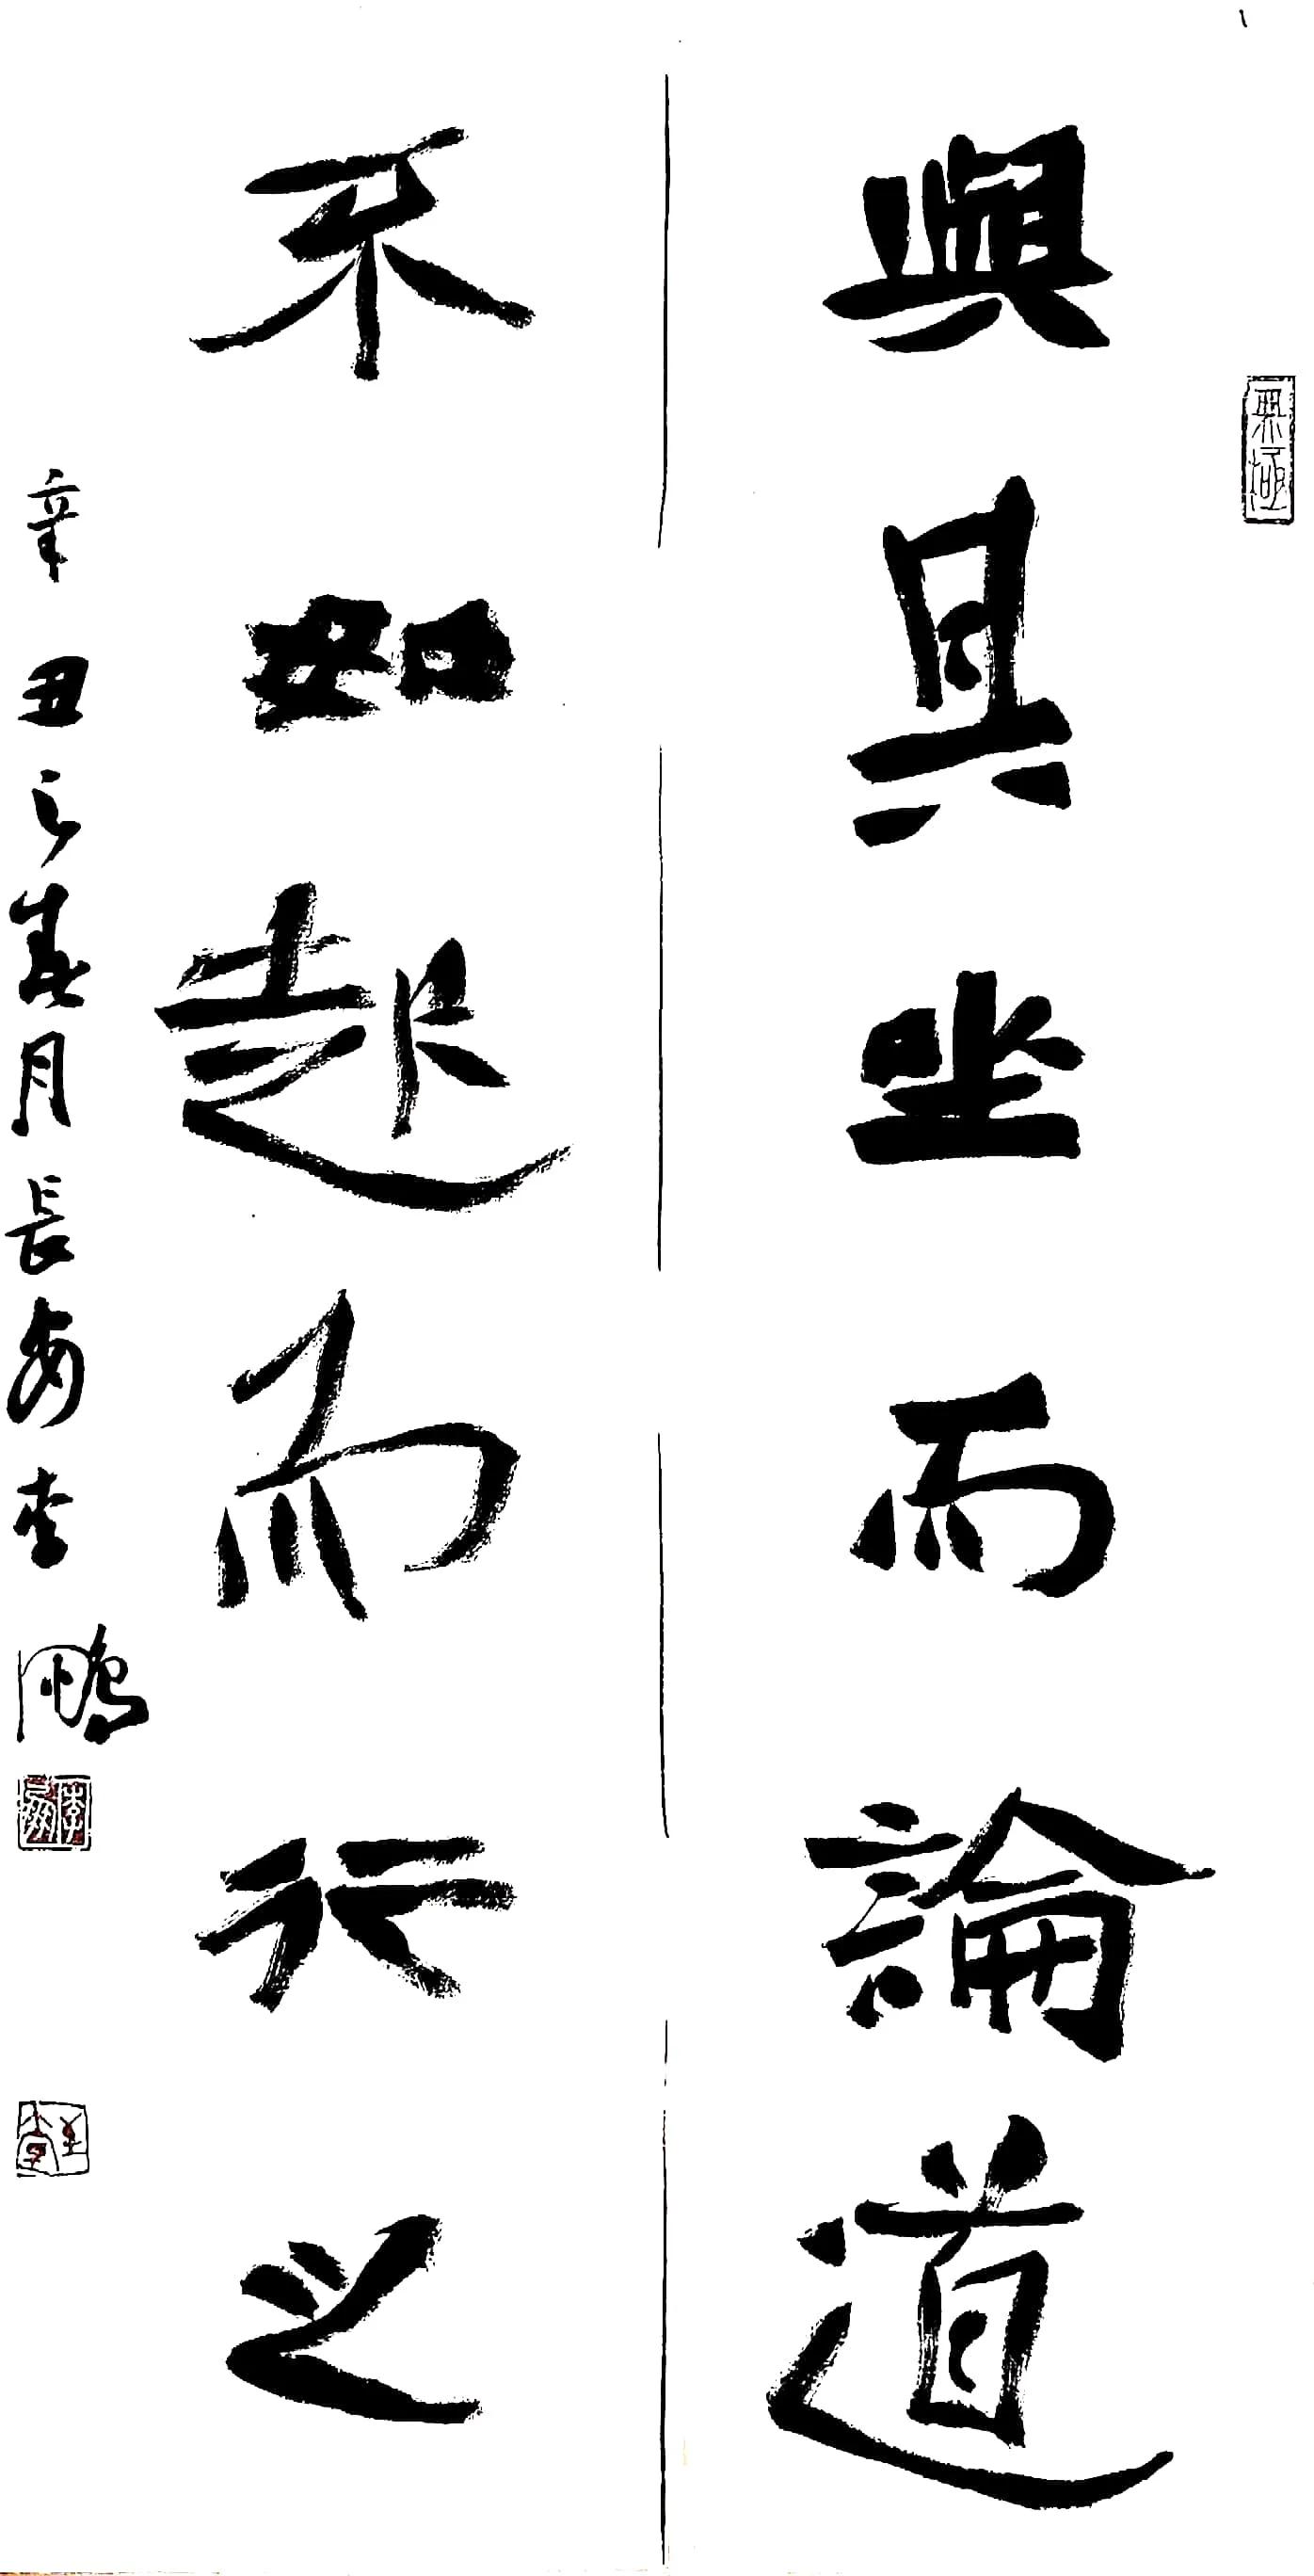 與其坐而論道
不如起而行之
辛丑之春月長安李鵬
無極
李鵬